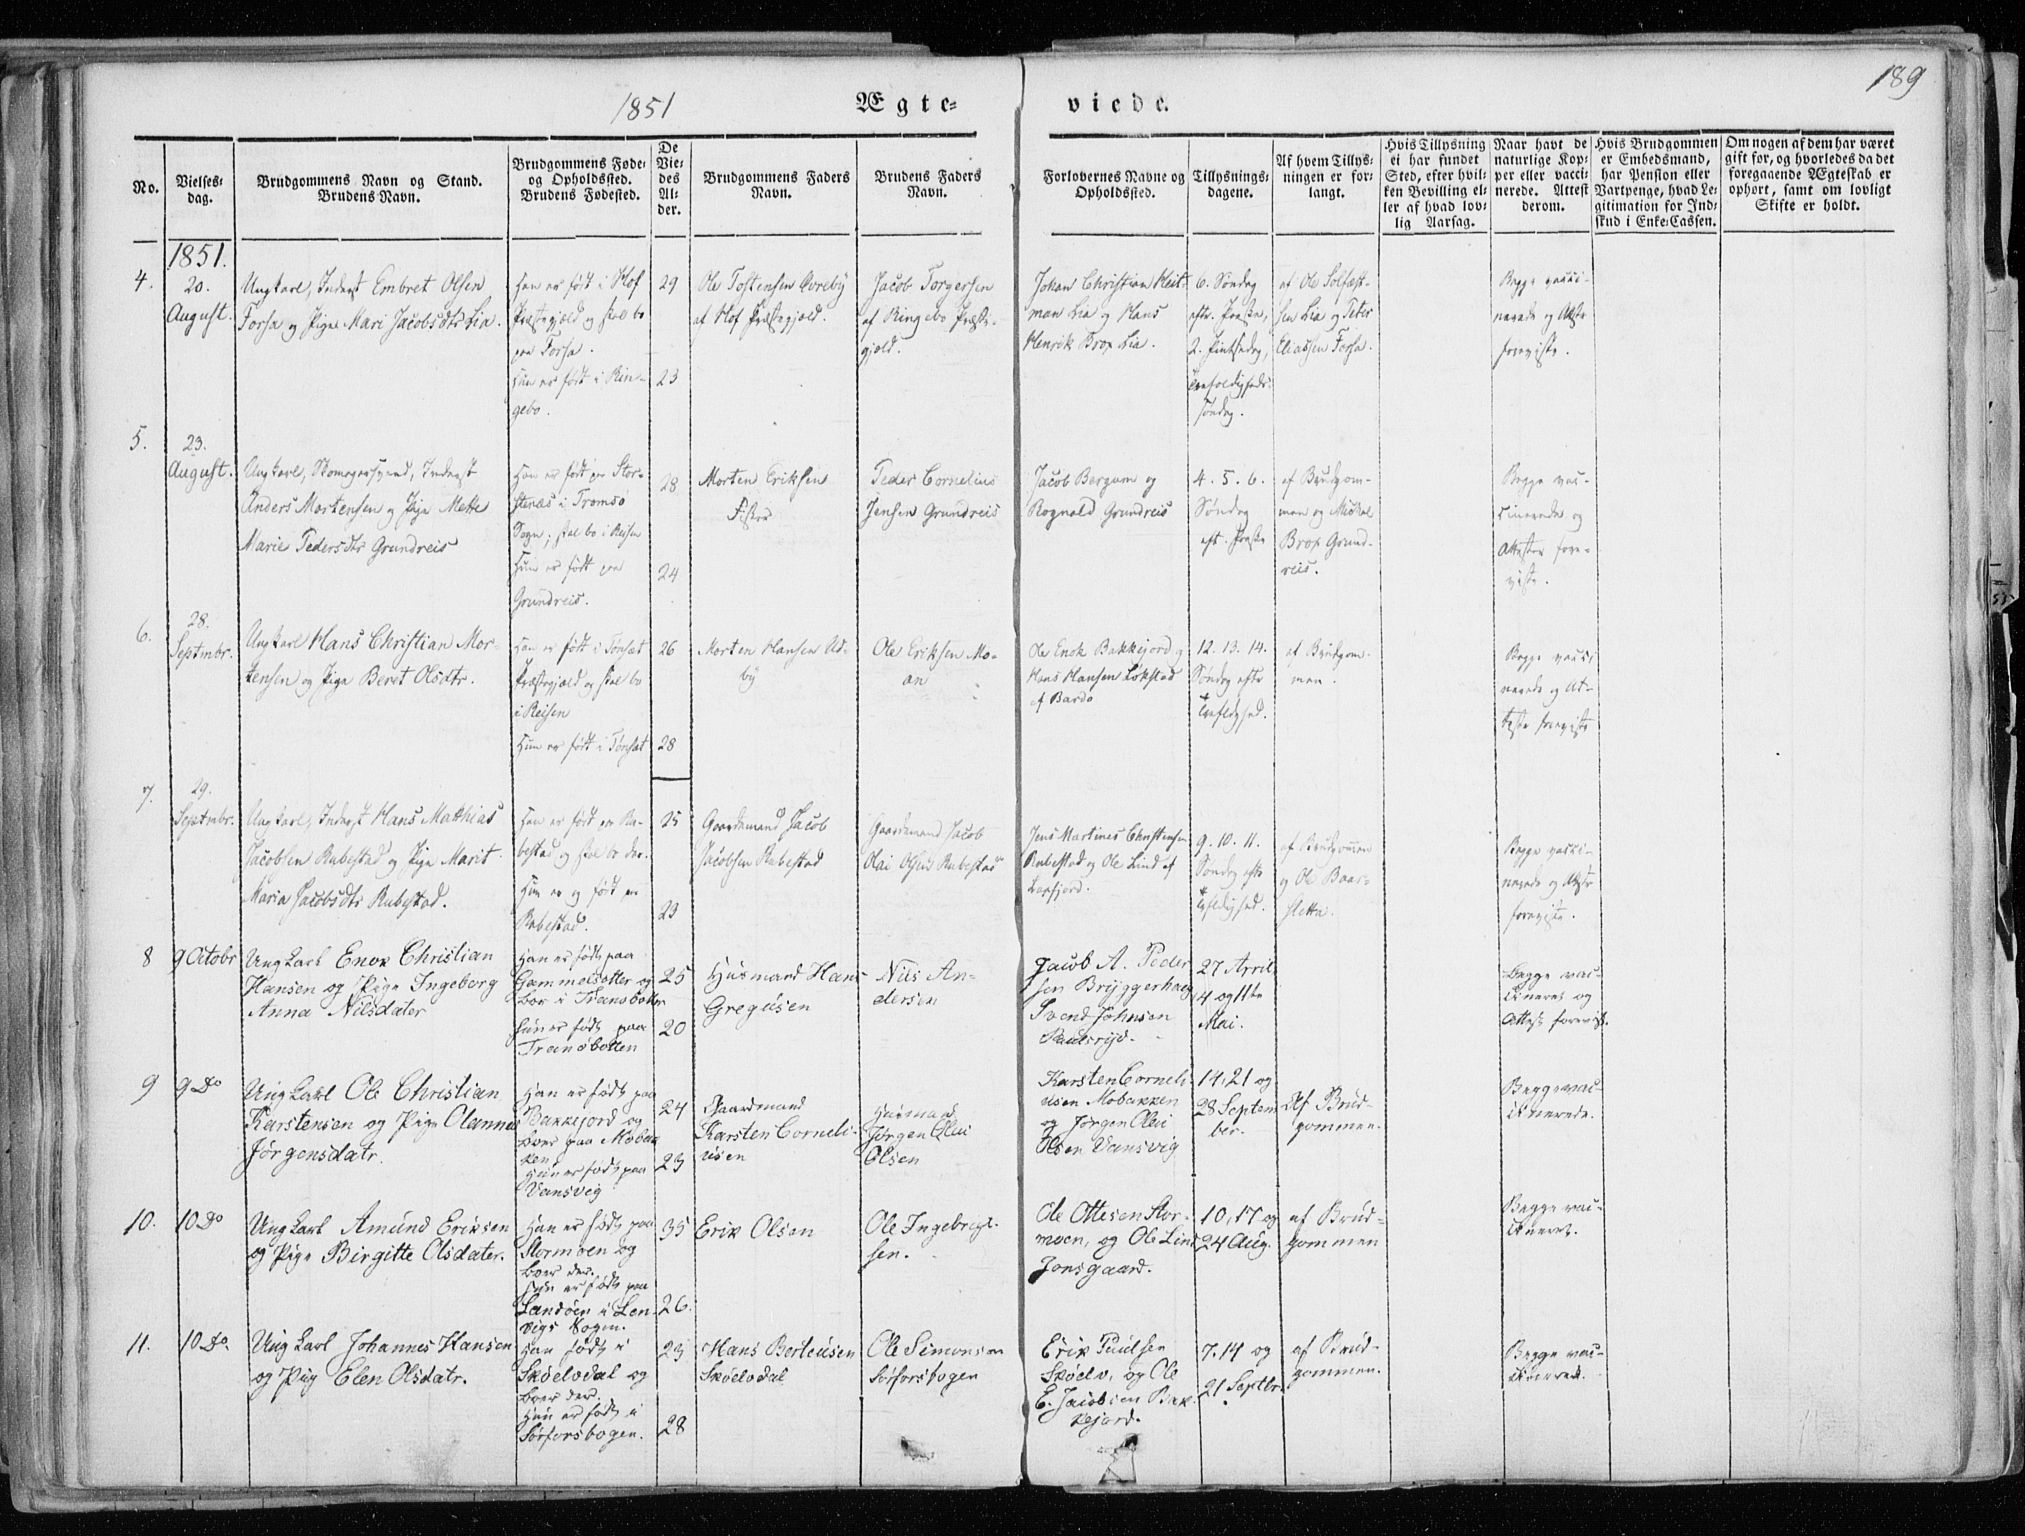 189
1851
Ægte-
viede.
No.
Vielses-
dag.
Brudgommens Navn og Stand.
Brudens Navn.
Brudgommens Føde-
og Opholdssted.
Brudens Fødested.
De
Vie-
des
Al-
der.
Brudgommens Faders
Navn.
Brudens Faders
Navn.
Forlovernes Navne og
Opholdssted.
Tillysnings-
dagene.
Af hvem Tillys-
ningen er for-
langt.
Hvis Tillysning
ei har fundet
Sted, efter hvil-
ken Bevilling el-
ler af hvad lov-
lig Aarsag.
Naar havt de
naturlige Kop-
per eller vacci-
nerede. Attest
derom.
Hvis Brudgommen
er Embedsmand,
har Pension eller
Vartpenge, hvad Le-
gitimation for Ind-
skud i Enke-Cassen.
Om nogen af dem har været
gift før, og hvorledes da det
foregaaende Ægteskab er
ophørt, samt om lovligt
Skifte er holdt.
1851.
4.
20.
August.
Ungkarl, Inderst Embret Olsen
Forsa og Pige Mari Jacobsdtr Lia.
Han er født i Hof
Præstegjæld og skal bo
paa Forsa.
Hun er født i Rin-
gebo.
29
23
Ole Tostensen
af Hof Præstegjæld.
Jacob Torgersen
af Ringebo Præste-
gjæld.
Johan Christian Heit-
man Lia og Hans
Henrik Brox Lia.
6. Søndag
eftr. Paaske,
2. Pintsedag,
Trefoldigheds-
søndag.
af Ole Solfæst-
sen Lia og Peter
Eliassen Forsa.
Begge vacci-
nerede og Attester
foreviste.
5.
23.
August.
Ungkarl, Skomagersvend, Inderst
Anders Mortensen og Pige Mette
Marie Pedersdtr Grundreis
Han er født paa Stor-
stenæs i Tromsø
Sogn; skal bo i Reisen
Hun er født paa
Grundreis.
28
24
Morten Eriksen
Fisker
Peder Cornelius
Jensen Grundreis
Jacob Bergum og
Rognald Grundreis
4. 5. 6.
Søndag
eft. Paaske
af Brudgom-
men og Mickel
Brox Grund-
reis.
Begge vac-
cinerede og
Attester fore-
viste.
6.
28.
Septmbr.
Ungkarl Hans Christian Mor-
tensen og Pige Beret Olsdtr.
Han er født i Tønset
Præstegjæld og skal bo
i Reisen
Hun er født i Tønset
26
28
Morten Hansen Ud-
by
Ole Eriksen Mo-
an
Ole Enok Bakkejord og
Hans Hansen Løkstad
af Bardo
12. 13. 14.
Søndag eftr
Trefldghed.
af Brudgom-
men.
Begge vacci
nerede og At-
tester foreviste
7.
29.
Septmbr.
Ungkarl, Inderst Hans Matthias
Jacobsen Rubestad og Pige Marit
Maria Jacobsdtr Rubestad.
Han er født paa Ru-
bestad og skal bo der.
Hun er og født paa
Rubestad.
25
23
Gaardmand Jacob
Jacobsen Rubestad
Gaardmand Jacob
Olai Olsen Rubestad
Jens Martines Christensen
Rubestad og Ole Lind af
Laxfjord.
9. 10. 11.
Søndag eftr
Trfldighed.
af Brudgommen
og Ole Baar-
sletta.
Begge vacci-
nerede og Attester
foreviste.
8
9 Octobr
Ungkarl Enok Christian
Hansen og Pige Ingeborg
Anna Nilsdater
Han er født paa
Gammelsetter og
boer i Tranøbotten
Hun er født paa
Tranøbotten
25
20
Husmand Hans
Gregusen
Nils An-
dersen
Jacob A. Peder
sen Bryggerhaug
Svend Johnsen
27 April
4 og 11te
Mai.
Begge vac-
cineret og
Attest forevist.
9
9 Do
Ungkarl Ole Christian
Karstensen og Pige Oleanna
Jørgensdatr.
Han er født paa
Bakkejord og
boer paa Mobak
ken
Hun er født paa
Vansvig
24
23
Gaardmand
Karsten Corneli-
usen
Husmand
Jørgen Olai
Olsen
Karsten Corneli-
usen Mobakken
og Jørgen Olai
Olsen Vansvig
14, 21 og
28 Septem
ber.
Af Brud-
gommen.
Begge vac-
cinerede.
10.
10 Do
Ungkarl Amund Eriksen
og Pige Birgitte Olsdater.
Han er født paa
Stormoen og
boer der.
Hun er født paa
Sandøen i Len-
vigs Sogn.
35
26.
Erik Olsen
Ole Ingebrigt-
sen.
Ole Ottesen Stor-
moen, og Ole Lind
Jonsgaard.
10, 17 og
24 Aug.
af Brud-
gommen
Begge vac-
cineret.
11.
10 Do.
Ungkarl Johannes Hansen
og Pig Elen Olsdatr.
Han født i
Skøelvdal og
boer der.
Hun er født i
Sørforsbogen.
23
28
Hans Berteusen
Skøelvdal
Ole Simonsen
Sørforsbogen
Erik Paulsen
Skøelv, og Ole
E. Jacobsen Bak-
kejord.
7. 14 og
21 Septbr.
af Brud-
gommen.
Begge vac-
cinerede.